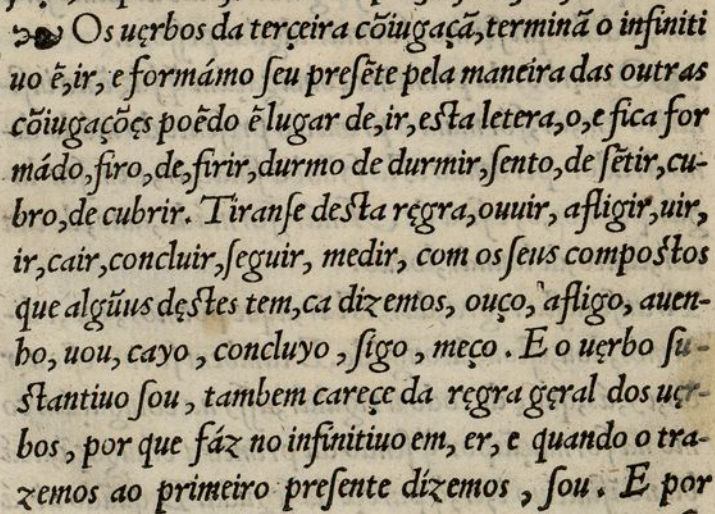 ❧ Os uęrbos da terçeira cõiugaçã, terminã o infiniti
uo ẽ, ir, e formámo ſeu preſẽte pela maneira das outras
cõiugaçõęs poẽdo ẽ lugar de, ir, eſta letera, o, e fica for
mádo, firo, de, firir, durmo de durmir, ſento, de ſẽtir, cu-
bro, de cubrir. Tiranſe deſta ręgra, ouuir, afligir, uir,
ir, cair, concluir, ſeguir, medir, com os ſeus compoſtos
que algũus dęſtes tem, ca dizemos, ouço, afligo, auen-
ho, uou, cayo, concluyo, ſigo, meço. E o uęrbo ſu-
ſtantiuo ſou, tambem careçe da ręgra gęral dos uęr-
bos, por que fáz no infinitiuo em, er, e quando o tra-
zemos ao primeiro preſente dízemos, ſou. E por